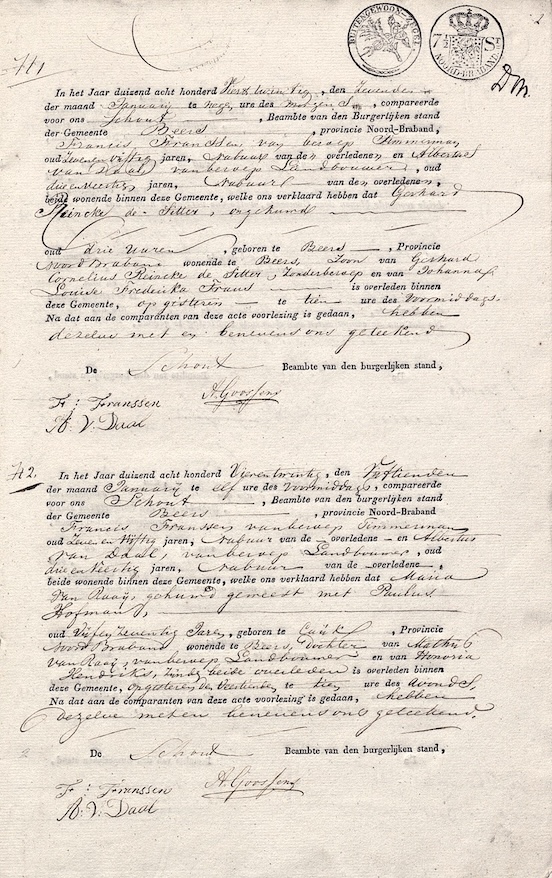 BUITENGEWOON ZEGEL
7½ St
NOORD-BRABAND
2
In het Jaar duizend acht honderd Vierentwintig, den Zevenden
der maand January te negen ure des morgens, compareerde
voor ons Schout, Beambte van den Burgerlijken stand
der Gemeente Beers, provincie Noord-Braband,
Francis Franssen van beroep Timmerman
oud Zevenenvijftig jaren, Nabuur van den overledenen, en Albertus
van Daal van beroep Landbouwer, oud
drieenveertig jaren, Nabuur van den overledenen,
beide wonende binnen deze Gemeente, welke ons verklaard hebben dat Gerhard
Reincke de Sitter, ongehuwd
oud drie uuren, geboren te Beers, Provincie
Noord Braband wonende te Beers, Zoon van Gerhard
Cornelius Reincke de Sitter, Zonder beroep en van Johanna
Louise Frederika is overleden binnen
deze Gemeente, op gisteren te tien ure des voormiddags.
Na dat aan de comparanten van deze acte voorlezing is gedaan, hebben
dezelve met en benevens ons geteekend
De Schout Beambte van den burgerlijken stand,
F: Franssen A. Goossens
A. V. Daal
N 2.
In het Jaar duizend acht honderd Vierentwintig, den Vyftienden
der maand January te elf ure des voormiddags, compareerde
voor ons Schout, Beambte van den Burgerlijken stand
der Gemeente Beers, provincie Noord-Braband
Francis Franssen van beroep Timmerman
oud Zevenenvijftig jaren, Nabuur van de overledene en Albertus
van Daal, van beroep Landbouwer, oud
drieenveertig jaren, Nabuur van de overledene,
beide wonende binnen deze Gemeente, welke ons verklaard hebben dat Maria
van Raaij, gehuwd geweest met Paulus
Hofmans,
oud Vijfenzeventig Jaren, geboren te Cuijk, Provincie
Noord Braband wonende te Beers, Dochter van Mathijs
van Raaij, van beroep Landbouwer en van Honoria
Hendriks, zijnde beide overleden is overleden binnen
deze Gemeente, op gisteren den Veertienden te tien ure des avonds.
Na dat aan de comparanten van deze acte voorlezing is gedaan, hebben
dezelve met en benevens ons geteekend.
De Schout Beambte van den burgerlijken stand,
F: Franssen A. Goossens
A. V. Daal